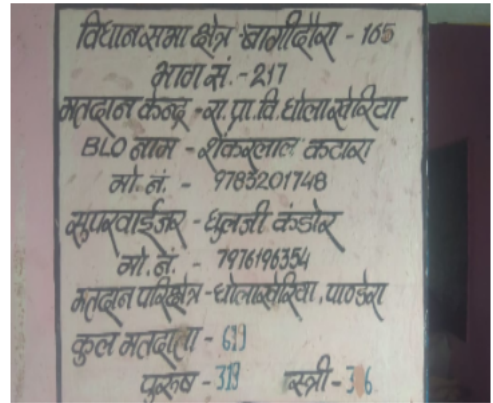 विधानसभा क्षेत्र - बागीदौरा - 165
भाग सं. - 217
मतदान केन्द्र - रा.प्रा.वि. धोलाखेरिया
BLO नाम - शंकरलाल कटारा
मो. नं. - 9783201748
सुपरवाईजर - धुलजी कडोर
मो. नं. - 7976196354
मतदान परिक्षेत्र - धोलाखेरिया, पाण्डेरा
कुल मतदाता -
पुरुष - 319 स्त्री -